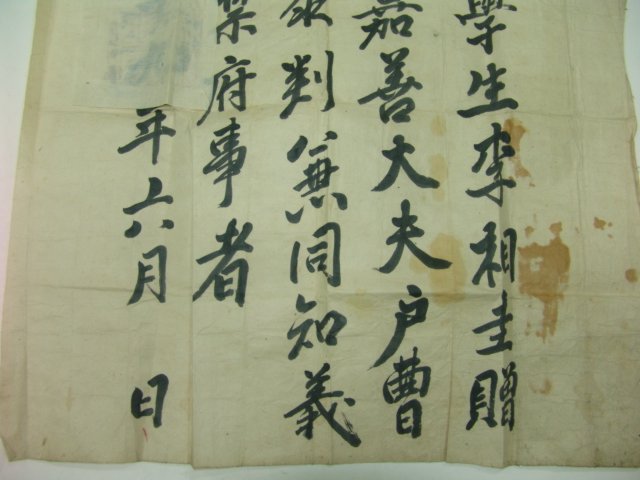 學生李相圭贈
嘉善大夫戶曹
參判兼同知義
禁府事者
年六月 日